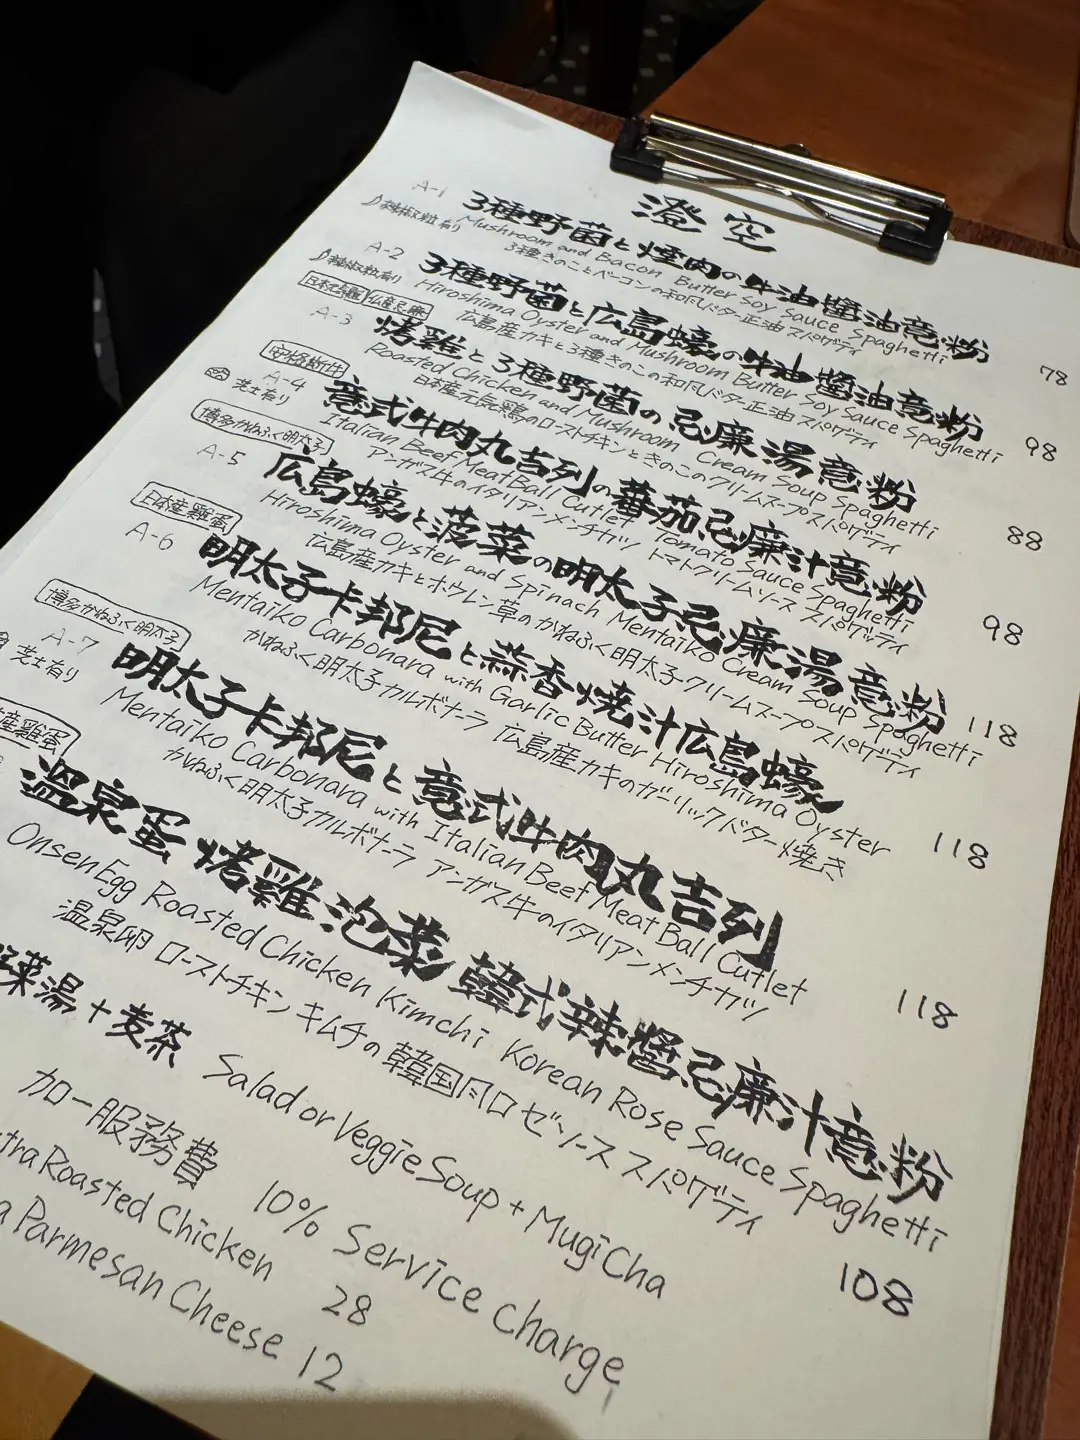 澄空
A-1 3種野菌と煙肉の牛油醬油意粉
辣椒粒有り Mushroom and Bacon Butter Soy Sauce Spaghetti 78
3種きのことベーコンの和風バター正油スパゲティ
A-2 3種野菌と広島蠔の牛油醬油意粉
辣椒粒有り Hiroshima Oyster and Mushroom Butter Soy Sauce Spaghetti 98
広島産カキと3種きのこの和風バター正油スパゲティ
A-3 烤雞と3種野菌の忌廉湯意粉
Roasted Chicken and Mushroom Cream Soup Spaghetti 88
日本産元気鶏のローストチキンときのこのクリームスープスパゲティ
安格斯牛
A-4 意式牛肉丸吉列の蕃茄忌廉汁意粉
芝士有り Italian Beef Meat Ball Cutlet Tomato Sauce Spaghetti 98
アンガス牛のイタリアンメンチカツ トマトクリームソース スパゲッティ
博多かねふく明太子
A-5 広島蠔と菠菜の明太子忌廉湯意粉
Hiroshima Oyster and Spinach Mentaiko Cream Soup Spaghetti 118
広島産カキとホウレン草のかねふく明太子クリームスープスパゲティ
日本産雞蛋
A-6 明太子卡邦尼と蒜香焼汁広島蠔
Mentaiko Carbonara with Garlic Butter Hiroshima Oyster 118
かねふく明太子カルボナーラ 広島産カキのガーリックバター焼き
博多かねふく明太子
A-7 明太子卡邦尼と意式牛肉丸吉列
芝士有り Mentaiko Carbonara with Italian Beef Meat Ball Cutlet 118
かねふく明太子カルボナーラ アンガス牛のイタリアンメンチカツ
産雞蛋
温泉蛋 烤雞泡菜 韓式辣醬忌廉汁意粉
Onsen Egg Roasted Chicken Kimchi Korean Rose Sauce Spaghetti 108
温泉卵 ローストチキン キムチの韓国風ロゼソース スパゲティ
菜湯+麦茶 Salad or Veggie Soup + MugiCha
加一服務費 10% Service charge
tra Roasted Chicken 28
a Parmesan Cheese 12